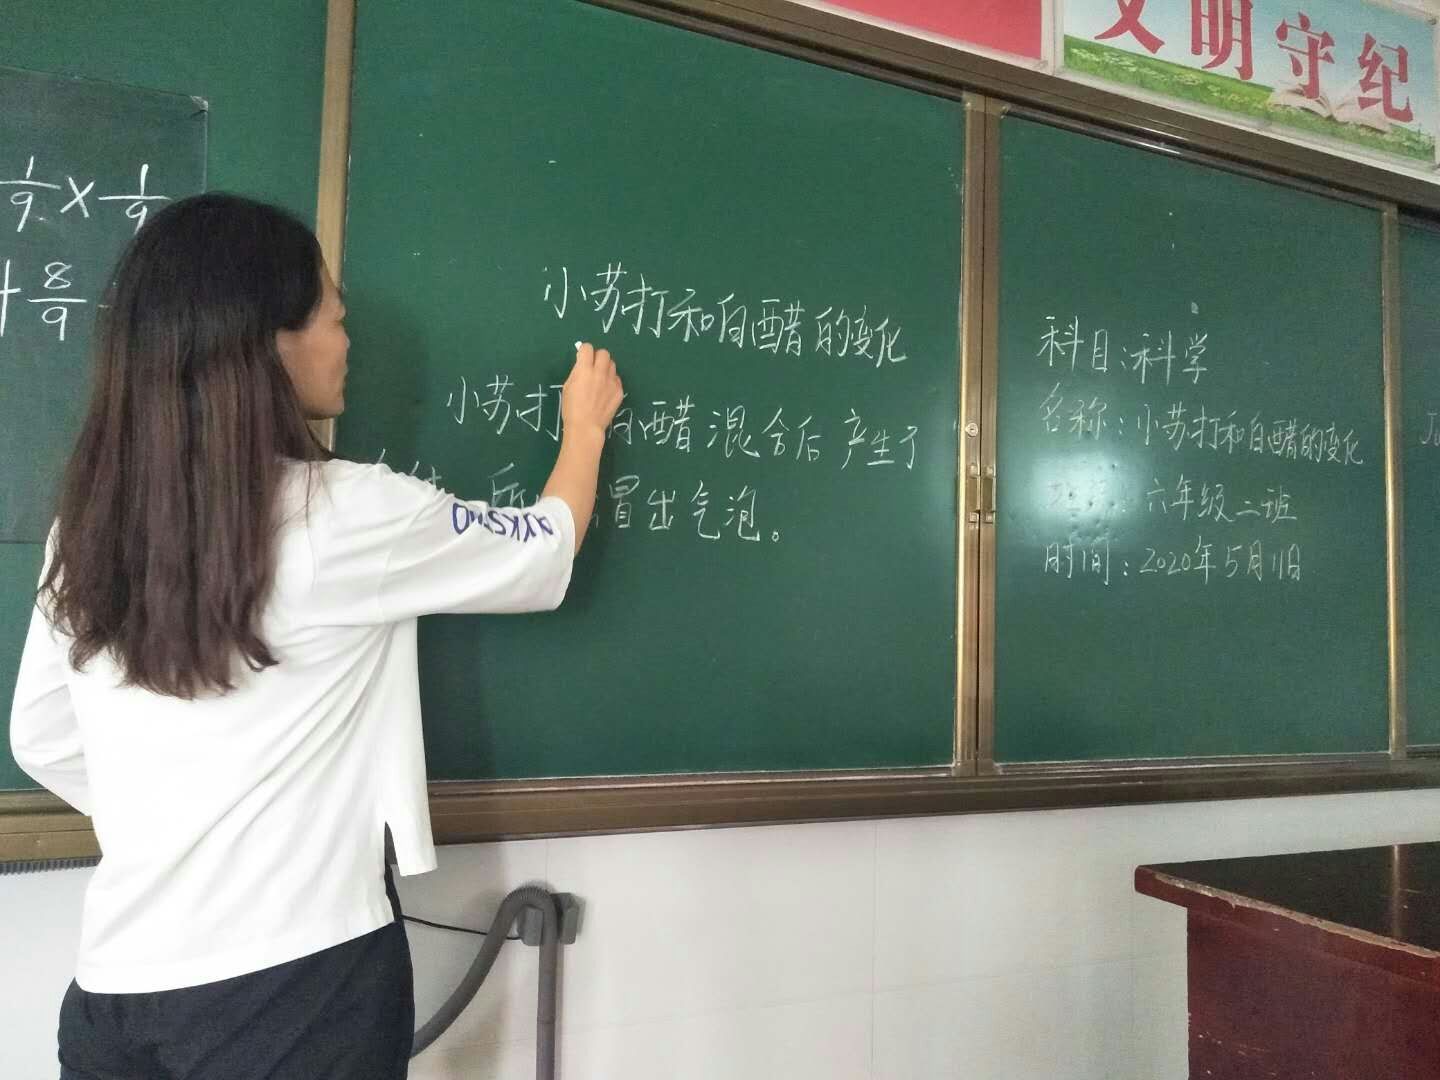 文明守纪
1/9 × 1/9
+ 8/9
小苏打和白醋的变化
小苏打 白醋混合后产生了
冒出气泡。
科目:科学
名称:小苏打和白醋的变化
六年级二班
时间:2020年5月11日